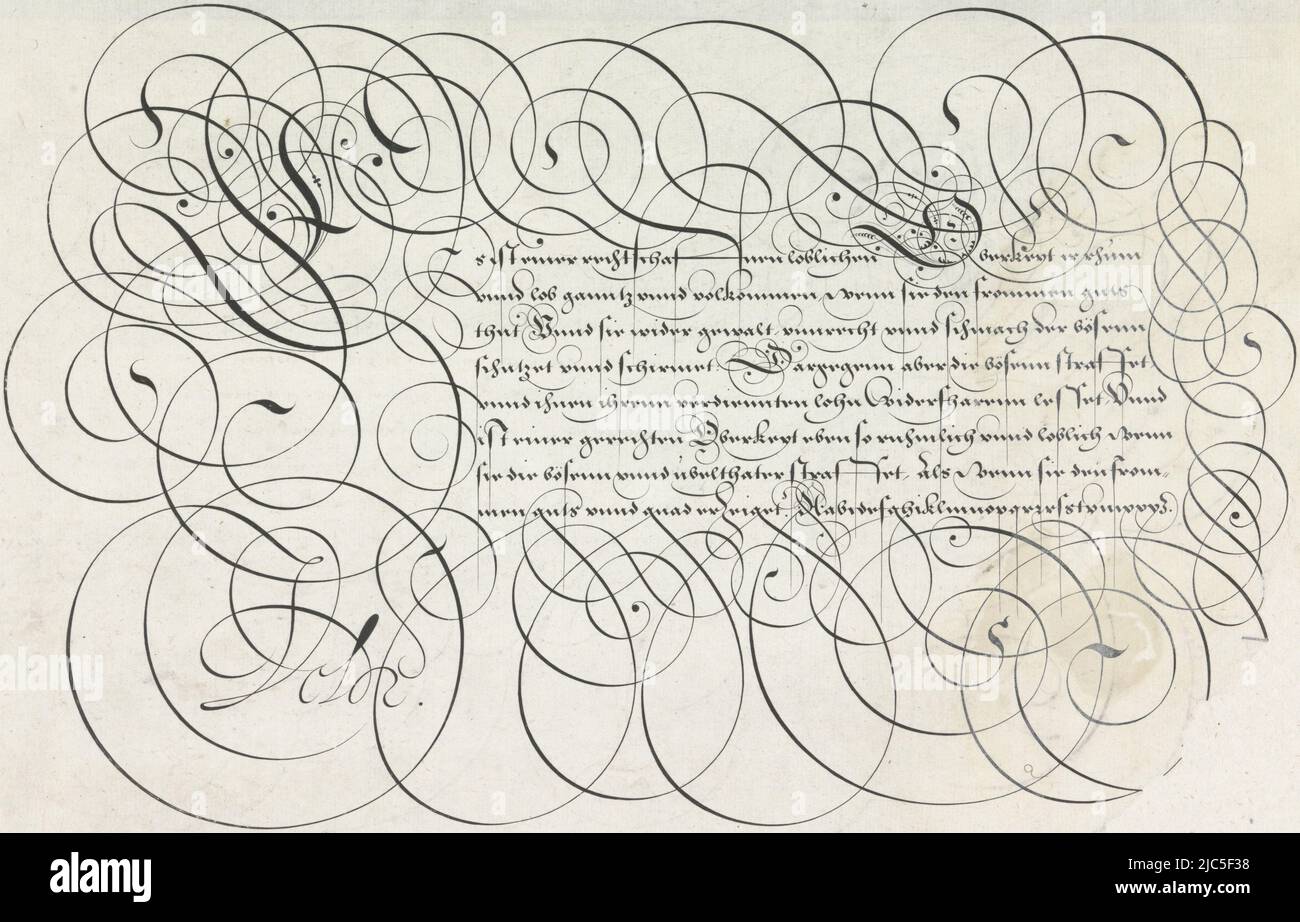 Es ist einer rechtschaffnen loblichen Oberkeyt ir rhum
vnnd lob ganntz vnnd volkommen Wenn sie den frommen guts
thut Vnnd sie wider gewalt vnnrecht vnnd schmach der bösenn
schützet vnnd schirmet. Dargegenn aber die bösenn straffet
vnnd ihnen ihrenn verdiennten lohn Widerfharenn lesset. Vnnd
ist einer gerechten Oberkeyt eben so rühmlich vnnd loblich Wenn
sie die bösenn vnnd übelthater straffet, Als Wenn sie den from-
men guts vnnd gnad erzeiget.
alamy
alamy
Image ID: 2JC5F38
www.alamy.com